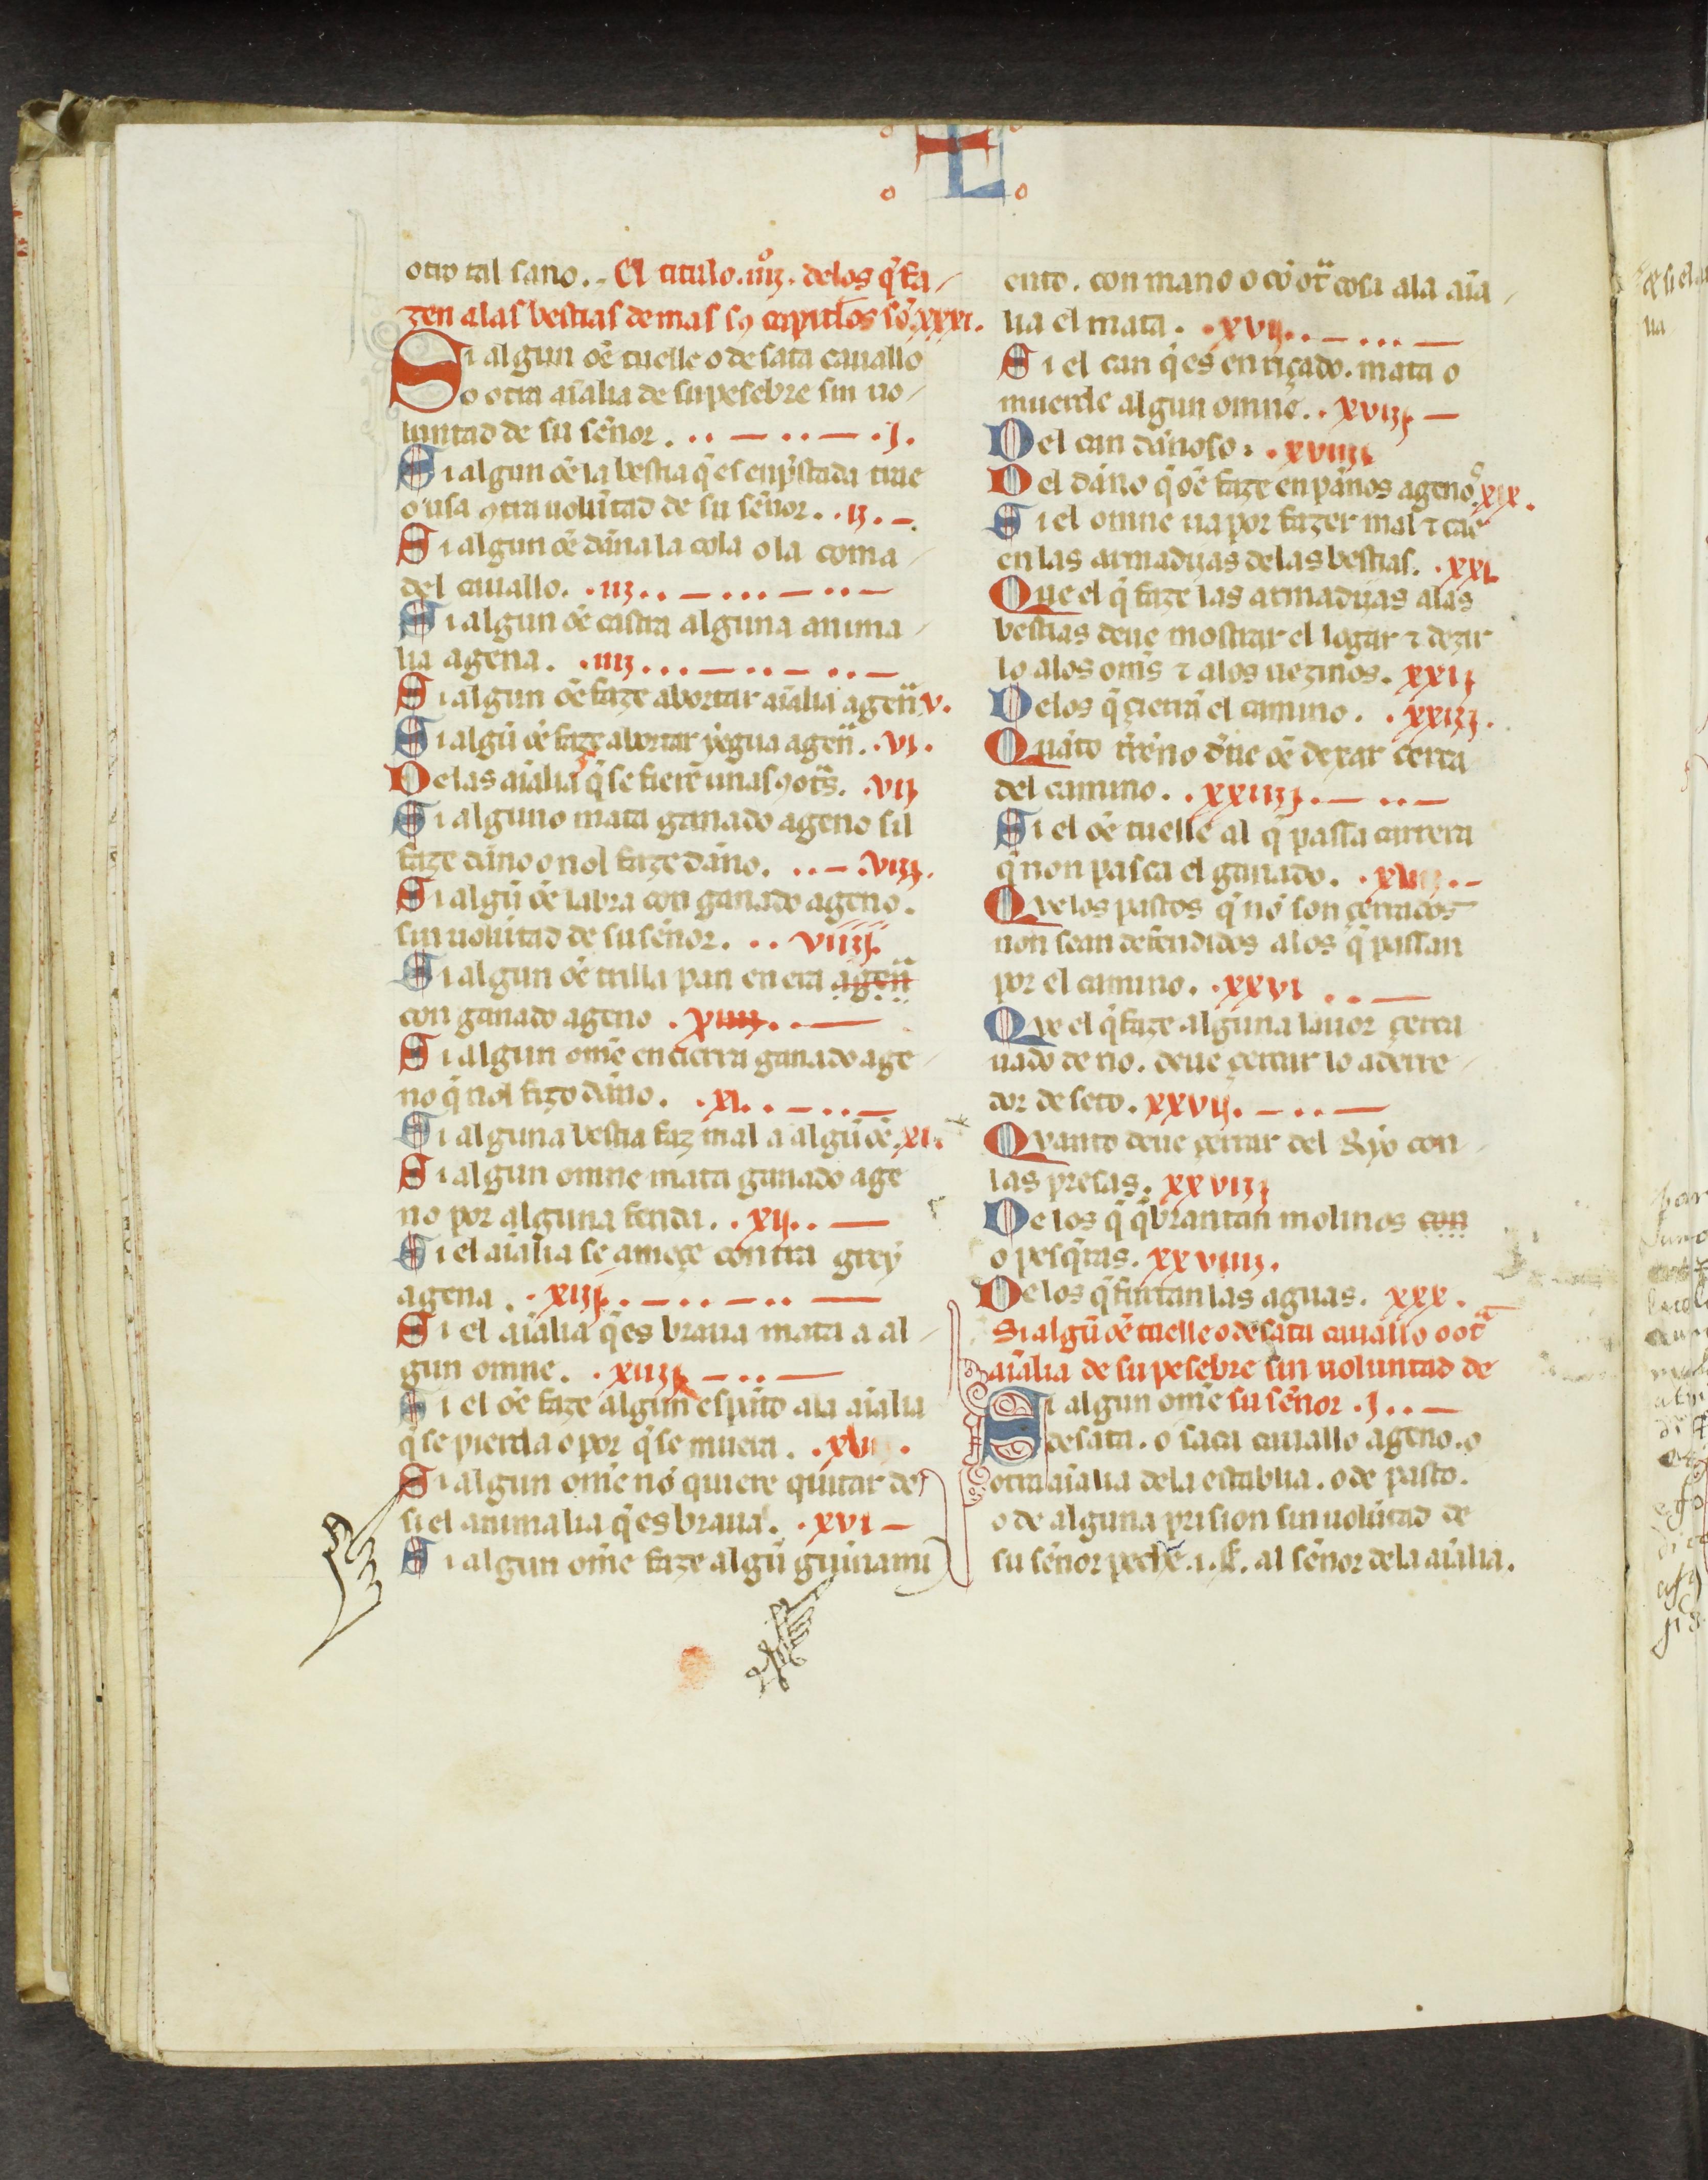 L
otro tal sano. El titulo .iiij.º delos q̃ fa
zen alas bestias de mas so capitulos sõ .xxxi.
Si algun oẽ tuelle o desata cauallo
o otra aĩalia de su pesebre sin uo
luntad de su señor. .j.
Si algun oẽ la bestia q̃ es enp̃stada trae
o usa ꝯtra uolũtad de su señor. .ij.
Si algun oẽ dãna la cola o la coma
del cauallo. .iij.
Si algun oẽ castra alguna anima
lia agena. .iiij.
Si algun oẽ faze abortar aĩalia agen̄a .v.
Si algũ oẽ faze abortar yegua agen̄a. .vi.
De las aĩalias q̃ se fierẽ unas ꝯ otr̃s. .vij
Si alguno mata ganado ageno sil
faze dãno o nol faze dãno. .viij.
Si algũ oẽ labra con ganado ageno.
sin uolũtad de su señor. .viiij.
Si algun oẽ trilla pan en era agen̄a
con ganado ageno .xiiij.
Si algun omẽ encierra ganado age
no q̃ nol fizo dãno. .xi.
Si alguna bestia faz mal a algũ oẽ .xi.
Si algun omne mata ganado age
no por alguna ferida. .xij.
Si el aĩalia se ameçe contra grey
agena. .xiij.
Si el aĩalia q̃ es braua mata a al
gun omne. .xiiij.
Si el oẽ faze algun espãto ala aĩalia
q̃ se pierda o por q̃ se muera. .xv.
Si algun omẽ nõ quiere quitar de
si el animalia q̃ es braua. .xvi
Si algun omẽ faze algũ guiñami
ento. con mano o cõ otr̃ cosa ala aĩa
lia el mata. .xvij.
Si el can q̃ es enriçado. mata o
muerde algun omne. .xviij
Del can dãnoso. .xviiij
Del dãno q̃ oẽ faze en pãnos agenos .xix.
Si el omne ua por fazer mal ⁊ cae
en las armadijas delas bestias. .xxi.
Que el q̃ faze las armadijas alas
bestias deue mostrar el logar ⁊ dezir
lo alos om̃s ⁊ alos uezinos. xxij
Delos q̃ çierrã el camino. .xxiij.
Quãto tr̃reno deue oẽ dexar cerca
del camino. .xxiiij.
Si el oẽ tuelle al q̃ passa carrera
q̃ non pasca el ganado.
Que los pastos q̃ nõ son çerrados
non sean defendidos alos q̃ passan
por el camino. .xxvi
Que el q̃ faze alguna lauor çerca
uado de rio. deue çerrar lo aderre
dor de seto. xxvij.
Quanto deue çerrar del Rijo con
las presas. xxviij
Delos q̃ q̃brantan molinos con
o pesq̃ras. xxviiij.
Delos q̃ furtan las aguas. xxx.
Si algũ oẽ tuelle o desata cauallo o otr̃a
aĩalia de su pesebre sin uoluntad de
Si algun omẽ su señor .j.
desata. o saca cauallo ageno. o
otra aĩalia dela establia. o de pasto.
o de alguna prision sin uolũtad de
su señor peche .i. ſ. al señor dela aĩalia.